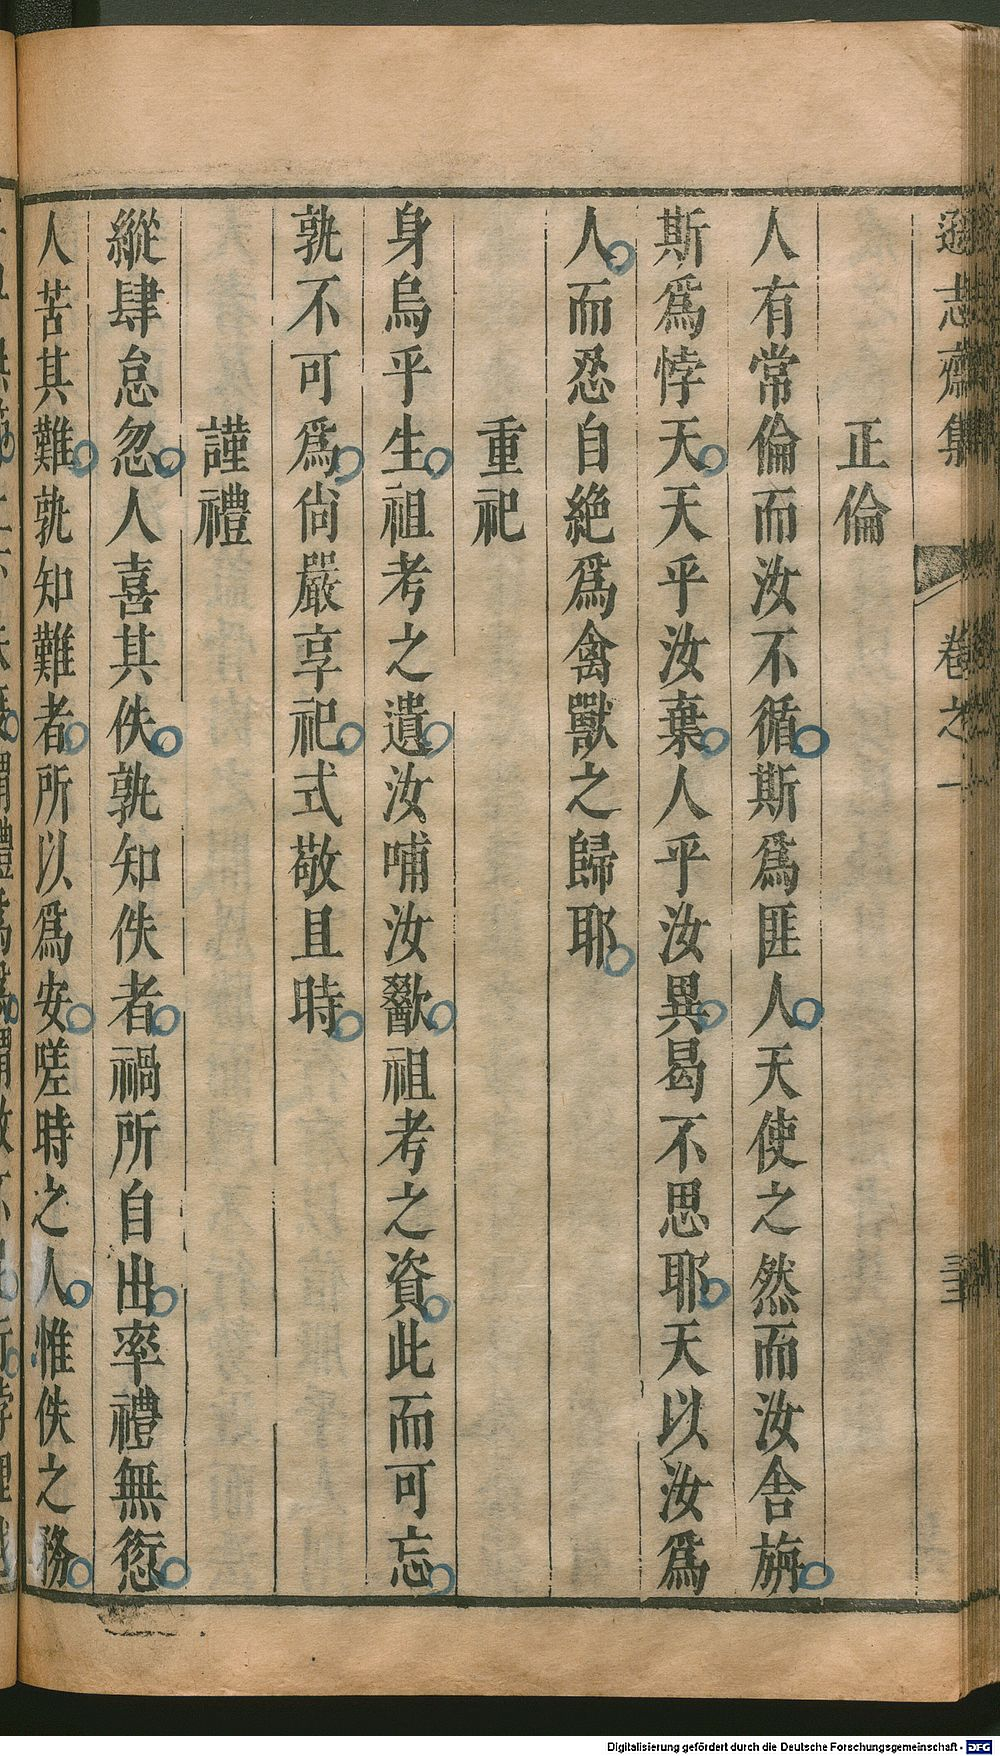 遜志齋集 卷之一
正倫
人有常倫而汝不循斯爲匪人天使之然而汝舍旃
斯爲悖天天乎汝棄人乎汝異曷不思耶天以汝爲
人而忍自絶爲禽獸之歸耶
重祀
身烏乎生祖考之遺汝哺汝歠祖考之資此而可忘
孰不可爲尙嚴享祀式敬且時
謹禮
縱肆怠忽人喜其佚孰知佚者禍所自出率禮無愆
人苦其難孰知難者所以爲安嗟時之人惟佚之務
Digitalisierung gefördert durch die Deutsche Forschungsgemeinschaft - DFG